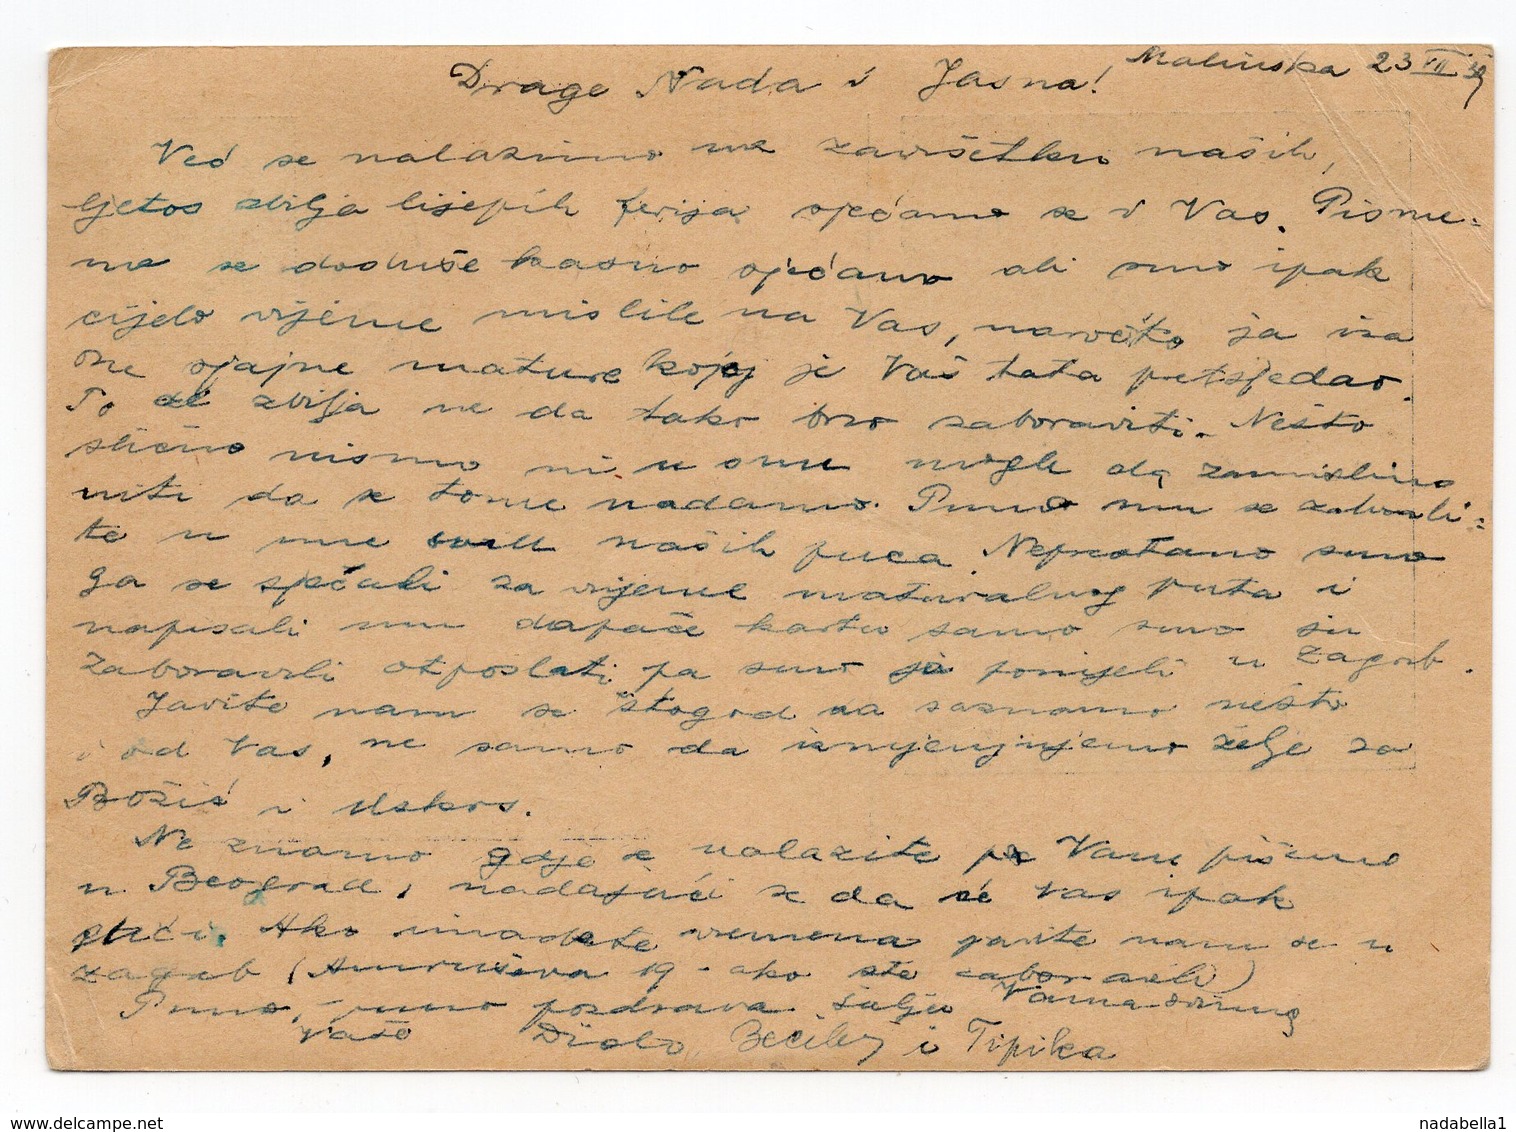 Malinska 23 VII 39
Drage Nada i Jasna!
Već se nalazimo na završetku naših,
ljetos zbilja lijepih ferija sjećamo se i Vas. Pisme=
no se doduše kasno sjećamo ali smo ipak
cijelo vrijeme mislile na Vas, naročito ja iza
one sjajne mature kojoj je Vaš tata pretsjedao.
To se zbilja ne da tako brzo zaboraviti. Nešto
slično nismo ni u snu mogli da zamislimo
niti da se tome nadamo. Puno mu se zahvali=
te u ime sviju naših puca. Neprestano smo
ga se sjećali za vrijeme maturalnog puta i
napisali mu dapače kartu samo smo ju
zaboravili otposlati pa smo ju ponijeli u Zagreb.
Javite nam se štogod da saznamo nešto
i od Vas, ne samo da izmjenjujemo želje za
Božić i Uskrs.
Ne znamo gdje se nalazite pa Vam pišemo
u Beograd, nadajući se da će Vas ipak
stići. Ako imadete vremena javite nam se u
Zagreb (Amruševa 19 - ako ste zaboravili)
Puno, puno pozdrava šalju Vama
Vaše i Tipika
nadabella1